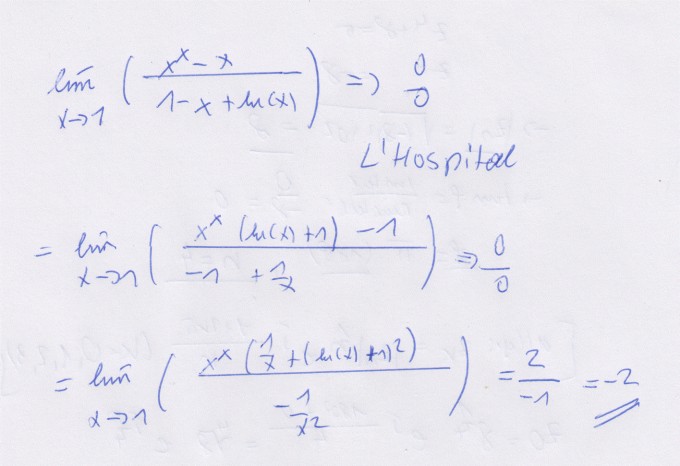 lim x→1 ( (x^x - x) / (1 - x + ln(x)) ) ⇒ 0/0
L'Hospital
= lim x→1 ( (x^x (ln(x) + 1) - 1) / (-1 + 1/x) ) ⇒ 0/0
= lim x→1 ( (x^x (1/x + (ln(x) + 1)^2)) / (-1/x^2) ) = 2/-1 = -2